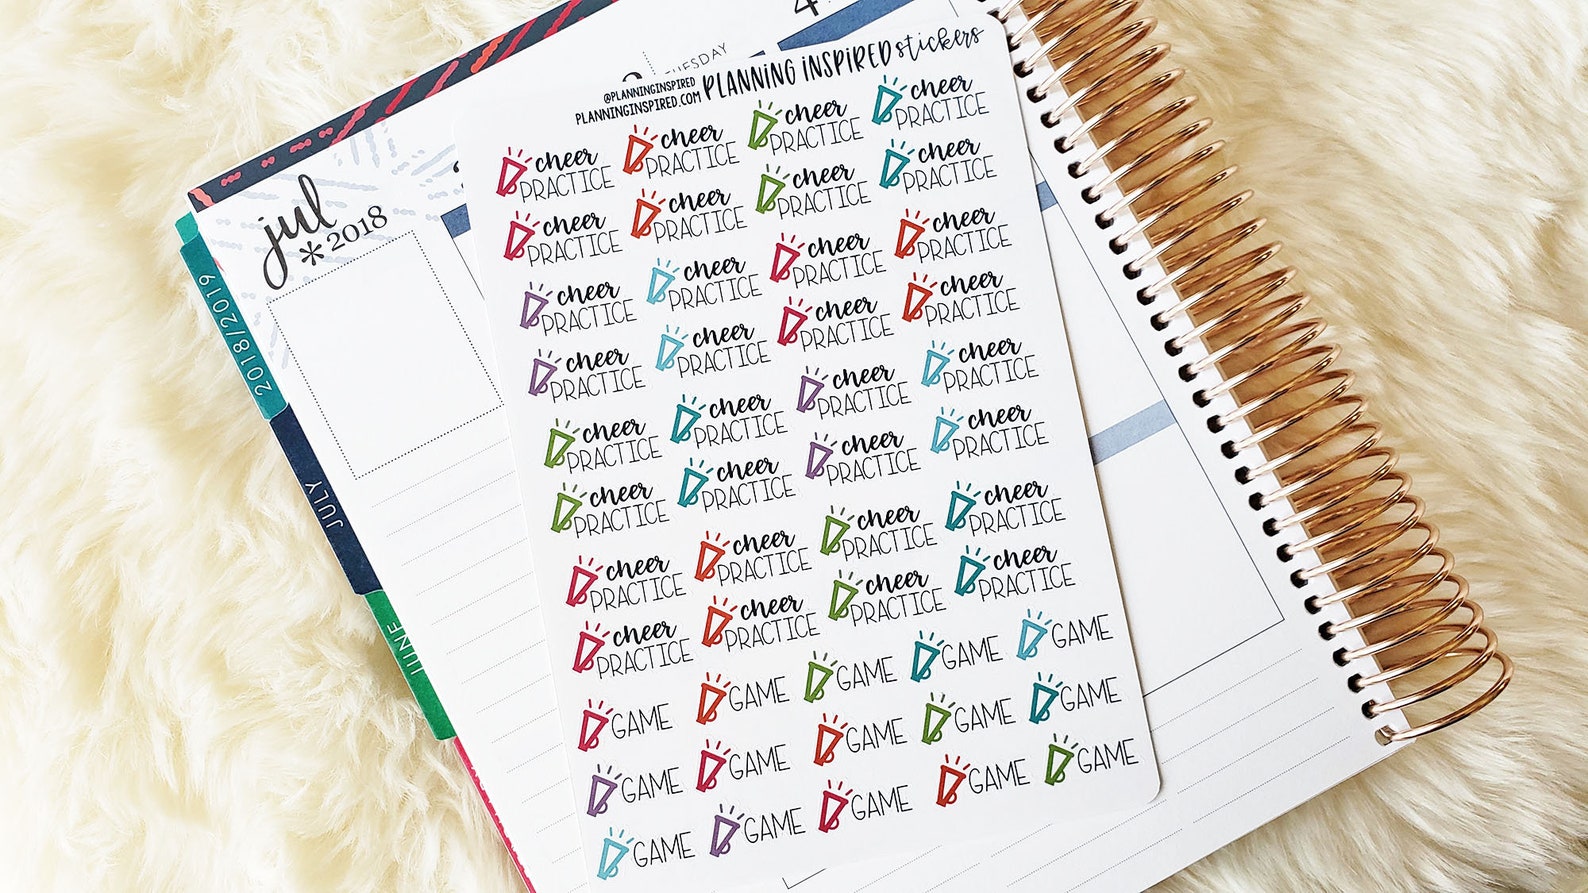 @PLANNINGINSPIRED
PLANNINGINSPIRED.COM
PLANNING INSPIRED stickers
cheer cheer cheer cheer
PRACTICE PRACTICE PRACTICE PRACTICE
cheer cheer cheer cheer
PRACTICE PRACTICE PRACTICE PRACTICE
cheer cheer cheer cheer
PRACTICE PRACTICE PRACTICE PRACTICE
cheer cheer cheer cheer
PRACTICE PRACTICE PRACTICE PRACTICE
cheer cheer cheer cheer
PRACTICE PRACTICE PRACTICE PRACTICE
cheer cheer cheer cheer
PRACTICE PRACTICE PRACTICE PRACTICE
cheer cheer cheer cheer
PRACTICE PRACTICE PRACTICE PRACTICE
cheer cheer cheer cheer
PRACTICE PRACTICE PRACTICE PRACTICE
GAME GAME GAME GAME GAME
GAME GAME GAME GAME GAME
GAME GAME GAME GAME GAME
jul
* 2018
2018/2019
JULY
JUNE